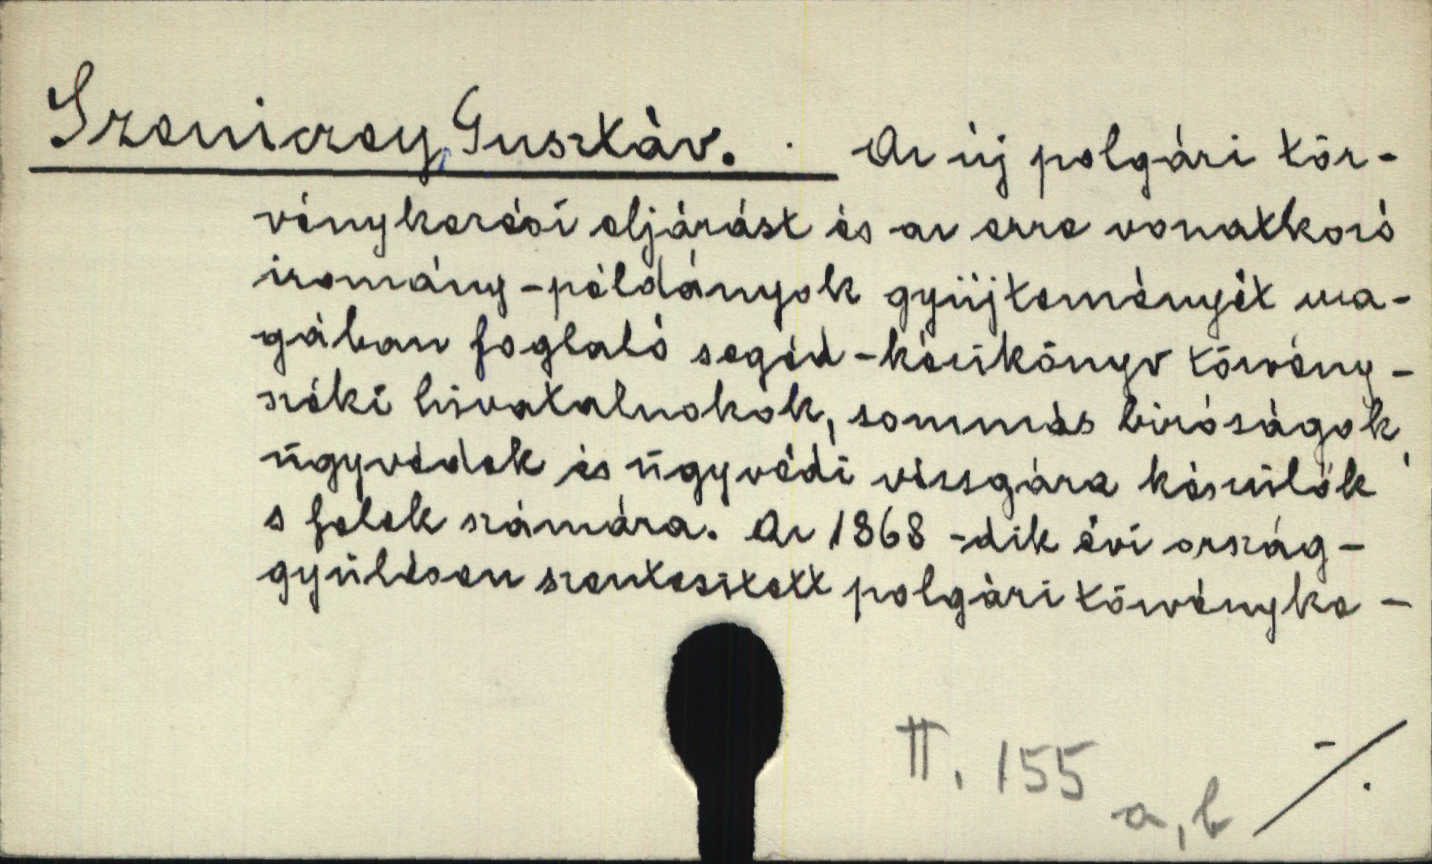 Szeniczey, Gusztáv. Az új polgári tör-
vénykezési eljárást és az erre vonatkozó
iromány-példányok gyüjteményét ma-
gában foglaló segéd-kézikönyv törvény-
széki hivatalnokok, sommás biróságok,
ügyvédek és ügyvédi vizsgára készülők
s felek számára. Az 1868-dik évi ország-
gyülésen szentesitett polgári törvényke-
II. 155 a, b ./.